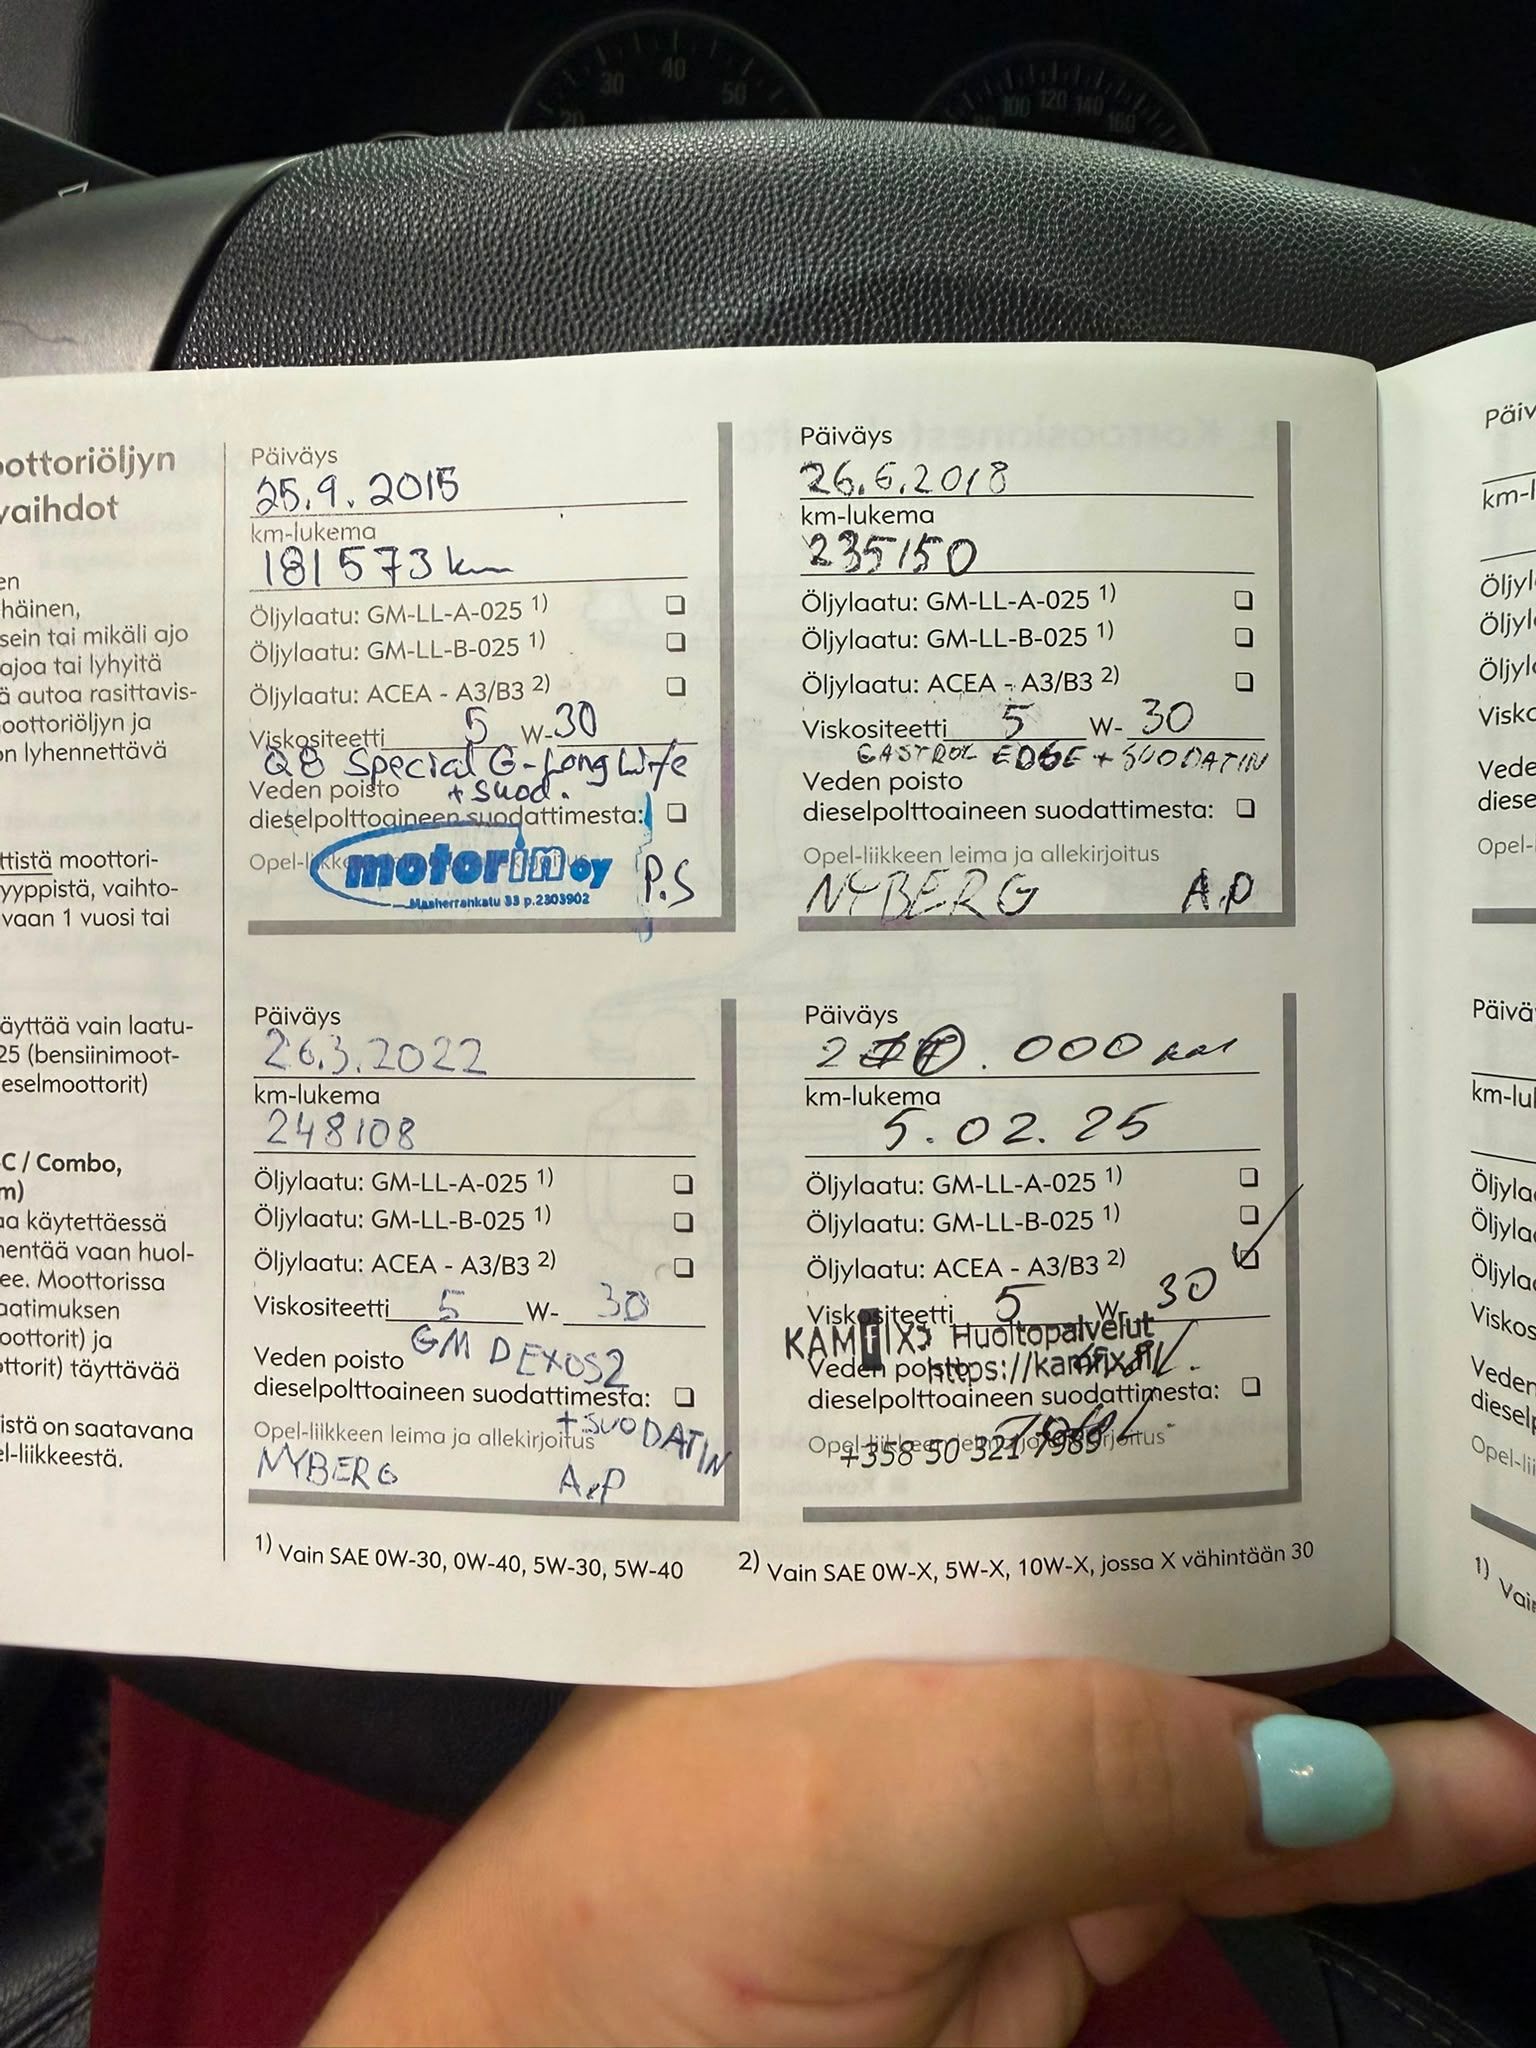 20 30 40 50
80 100 120 140 160
oottoriöljyn
vaihdot
en
häinen,
sein tai mikäli ajo
ajoa tai lyhyitä
ä autoa rasittavis-
oottoriöljyn ja
on lyhennettävä
ttistä moottori-
yyppistä, vaihto-
vaan 1 vuosi tai
äyttää vain laatu-
25 (bensiinimoot-
eselmoottorit)
C / Combo,
m)
aa käytettäessä
nentää vaan huol-
ee. Moottorissa
aatimuksen
oottorit) ja
ottorit) täyttävää
istä on saatavana
el-liikkeestä.
Päiväys
25.9.2015
km-lukema
181573 km
Öljylaatu: GM-LL-A-025 1)
Öljylaatu: GM-LL-B-025 1)
Öljylaatu: ACEA - A3/B3 2)
Viskositeetti 5 W-30
Q8 Special G-Long Life
Veden poisto + suod.
dieselpolttoaineen suodattimesta:
Opel-liikkeen leima ja allekirjoitus
motorin oy
Masherrankatu 33 p.2303902
P.S
Päiväys
26.6.2018
km-lukema
235150
Öljylaatu: GM-LL-A-025 1)
Öljylaatu: GM-LL-B-025 1)
Öljylaatu: ACEA - A3/B3 2)
Viskositeetti 5 W- 30
CASTROL EDGE + SUODATIN
Veden poisto
dieselpolttoaineen suodattimesta:
Opel-liikkeen leima ja allekirjoitus
NYBERG A.P
Päiväys
26.3.2022
km-lukema
248108
Öljylaatu: GM-LL-A-025 1)
Öljylaatu: GM-LL-B-025 1)
Öljylaatu: ACEA - A3/B3 2)
Viskositeetti 5 W- 30
GM DEXOS2
Veden poisto
dieselpolttoaineen suodattimesta:
+SUODATIN
Opel-liikkeen leima ja allekirjoitus
NYBERG A.P
Päiväys
.000 km
km-lukema
5.02.25
Öljylaatu: GM-LL-A-025 1)
Öljylaatu: GM-LL-B-025 1)
Öljylaatu: ACEA - A3/B3 2)
Viskositeetti 5 W- 30
KAMfIX Huoltopalvelut
Veden poisto
https://kamfix.fi/
dieselpolttoaineen suodattimesta:
Opel-liikkeen leima ja allekirjoitus
+358 50 321 7985
1) Vain SAE 0W-30, 0W-40, 5W-30, 5W-40
2) Vain SAE 0W-X, 5W-X, 10W-X, jossa X vähintään 30
Päiv
km-l
Öljyl
Öljyl
Öljyla
Visko
Vede
diese
Opel-
Päivä
km-l
Öljyla
Öljyla
Öljyla
Viskos
Veden
dieselp
Opel-lii
1) Vain